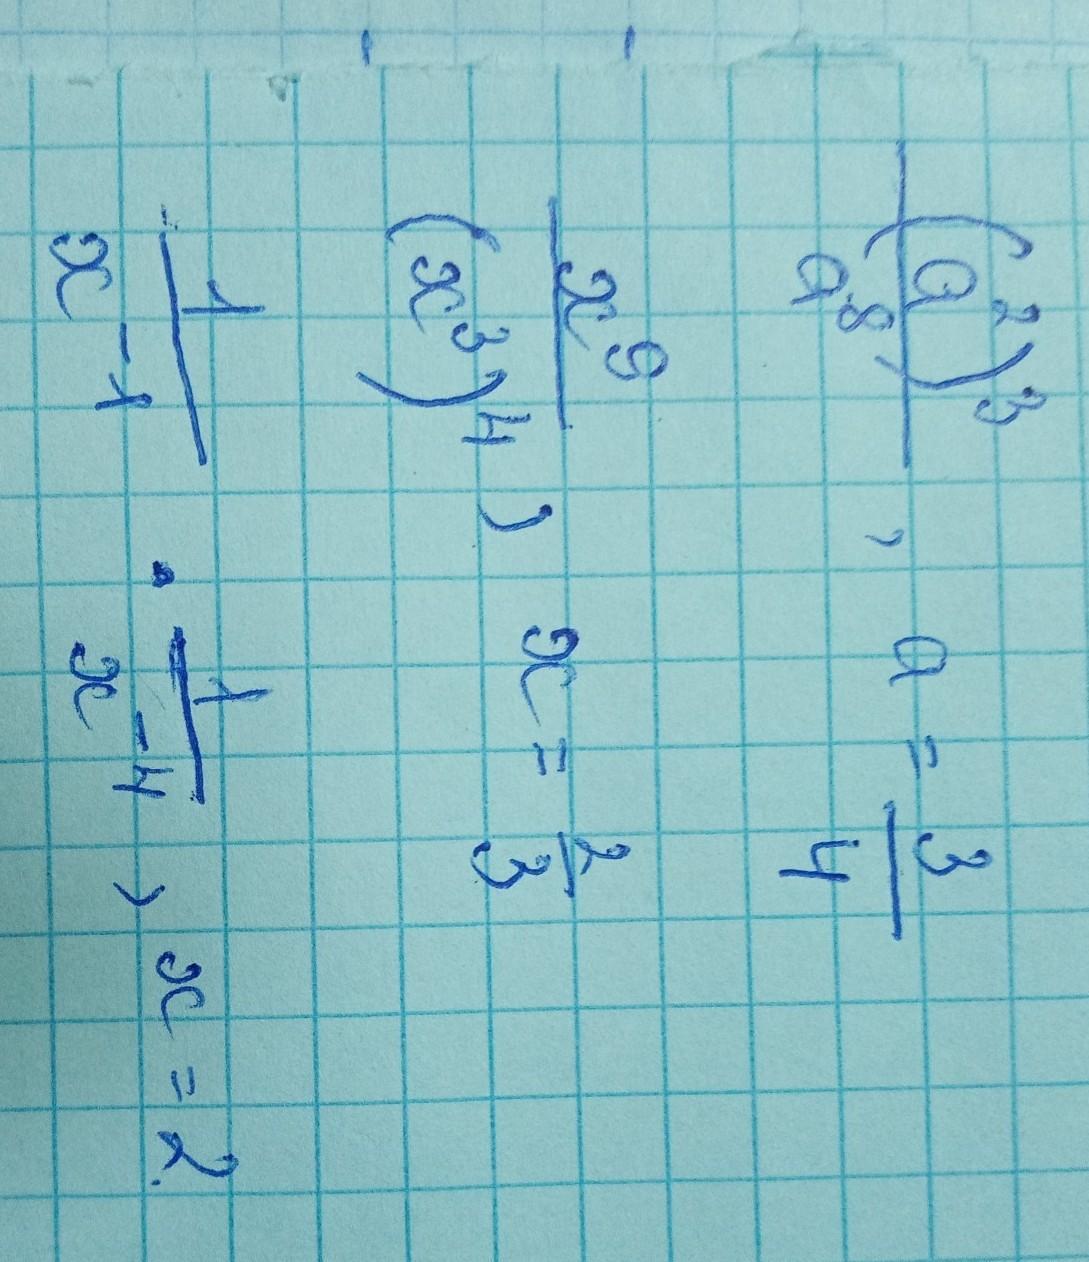 (a²)³/a⁸, a = 3/4
x⁹/(x³)⁴, x = 2/3
1/x⁻¹ · 1/x⁻⁴, x = 2.